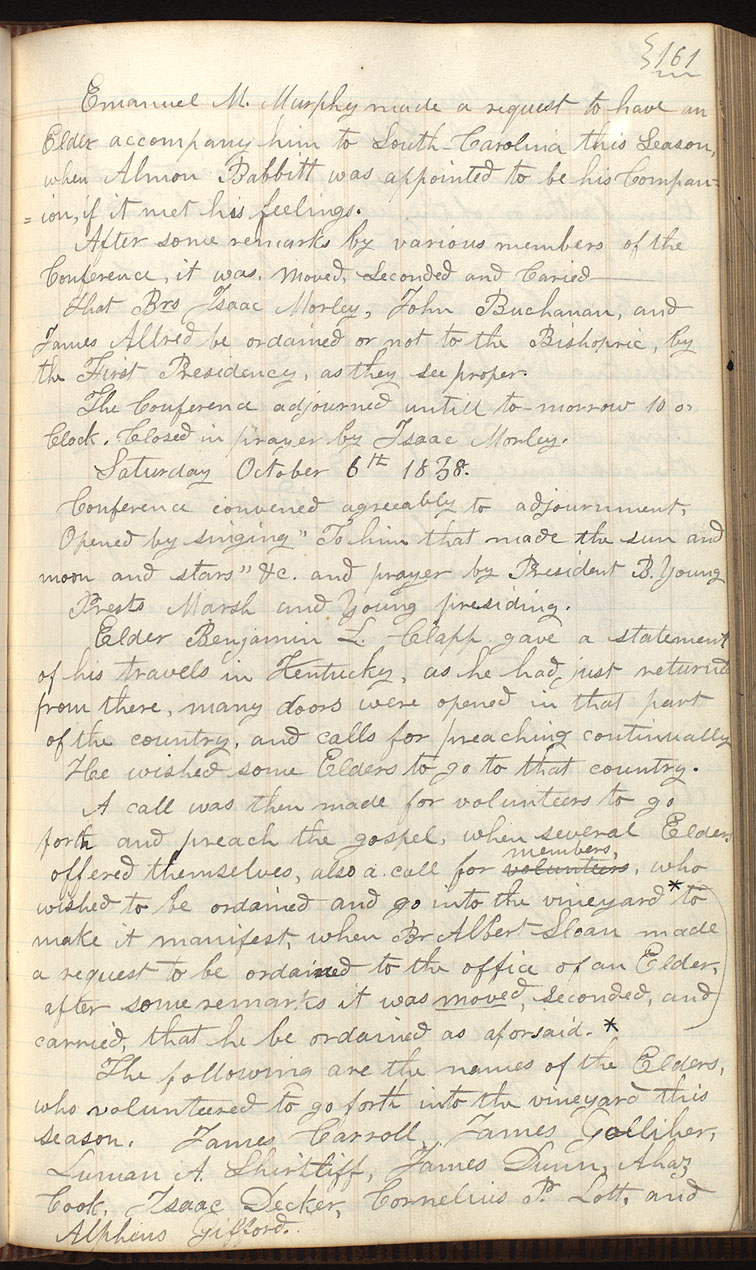 161
Emanuel M. Murphy made a request to have an
Elder accompany him to South-Carolina this Season,
when Almon Babbitt was appointed to be his Compan=
=ion, if it met his feelings.
After some remarks by various members of the
Conference, it was. Moved, Seconded and Caried
that Brs Isaac Morley, John Buchanan, and
James Allred be ordained or not to the Bishopric, by
the First Presidency, as they see proper.
The Conference adjourned untill to-morrow 10 o
Clock. Closed in prayer by Isaac Morley.
Saturday October 6th 1838.
Conference convened agreeably to adjournment,
Opened by singing "To him that made the sun and
moon and stars" &c. and prayer by President B. Young
Prests Marsh and Young presiding.
Elder Benjamin L. Clapp gave a statement
of his travels in Kentucky, as he had just returned
from there, many doors were opened in that part
of the country, and calls for preaching continually
He wished some Elders to go to that country.
A call was then made for volunteers to go
forth and preach the gospel, when several Elders
offered themselves, also a call for volunteers, members, who
wished to be ordained and go into the vineyard * to
make it manifest, when Br Albert Sloan made
a request to be ordained to the office of an Elder,
after some remarks it was moved, seconded, and
carried, that he be ordained as aforsaid. *
The following are the names of the Elders,
who volunteered to go forth into the vineyard this
season. James Carroll, James Galliher,
Luman A. Shirtliff, James Dunn, Ahaz
Cook, Isaac Decker, Cornelius P. Lott, and
Alpheus Gifford.